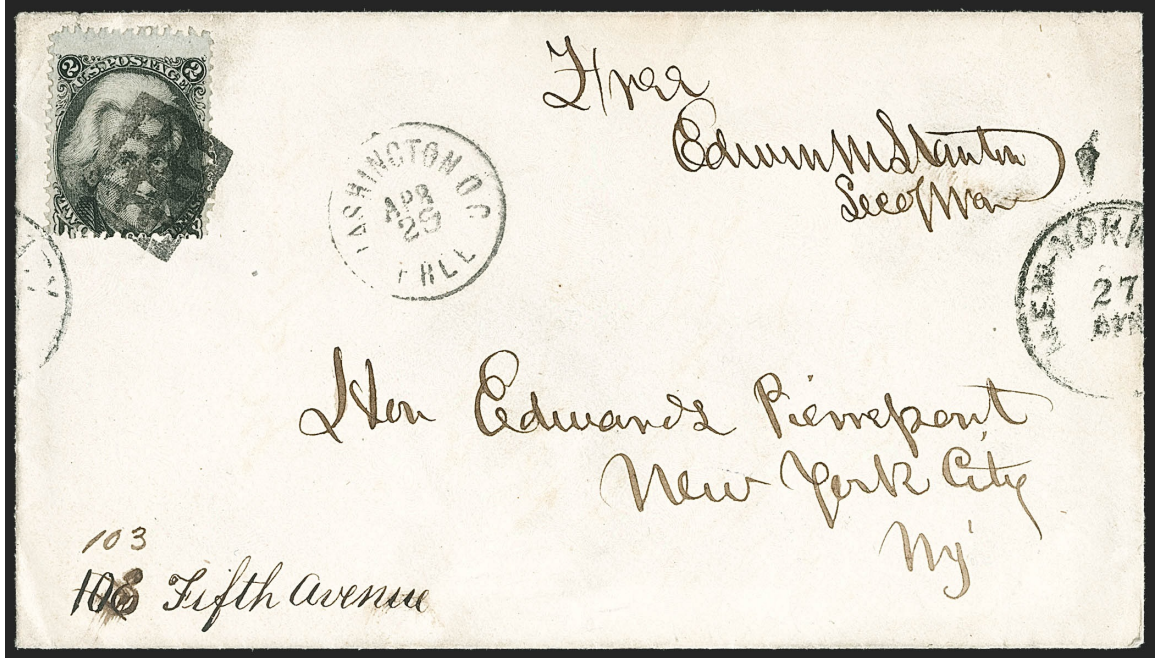 2 U.S. POSTAGE 2
Free
Edwin M Stanton
Sec of War
WASHINGTON D.C.
APR
29
FREE
NEW YORK
27
Hon Edwards Pierrepont
New York City
Ny
103
Fifth Avenue